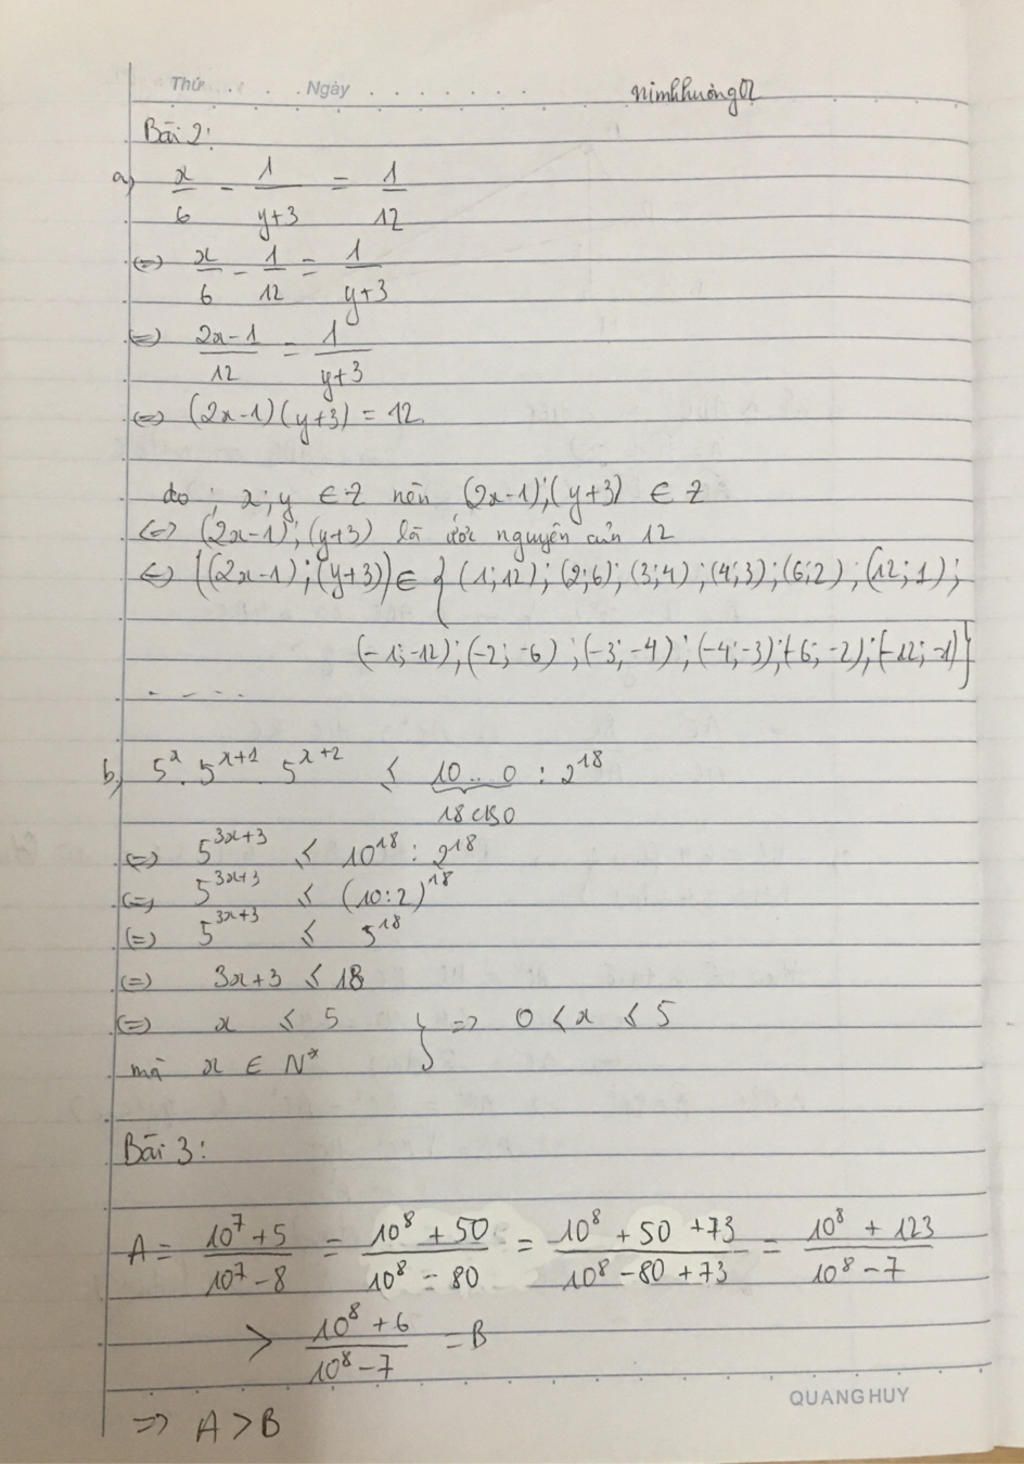 Thứ . . . . Ngày . . . . . . . nimhhuòng02
Bài 2:
a, x/6 - 1/(y+3) = 1/12
(=) x/6 - 1/12 = 1/(y+3)
(=) (2x-1)/12 = 1/(y+3)
(=) (2x-1)(y+3) = 12
do ; x;y ∈ Z nên (2x-1);(y+3) ∈ Z
<=> (2x-1);(y+3) là ước nguyên của 12
<=> {(2x-1);(y+3)} ∈ { (1;12); (2;6); (3;4); (4;3); (6;2); (12;1);
(-1;-12); (-2;-6); (-3;-4); (-4;-3); (-6;-2); (-12;-1)}
- - - -
b, 5^x . 5^(x+1) . 5^(x+2) ≤ 10...0 : 2^18
18 cs 0
(=) 5^(3x+3) ≤ 10^18 : 2^18
(=) 5^(3x+3) ≤ (10:2)^18
(=) 5^(3x+3) ≤ 5^18
(=) 3x+3 ≤ 18
(=) x ≤ 5 } => 0 < x ≤ 5
mà x ∈ N*
Bài 3:
A = (10^7 + 5)/(10^7 - 8) = (10^8 + 50)/(10^8 - 80) = (10^8 + 50 + 73)/(10^8 - 80 + 73) = (10^8 + 123)/(10^8 - 7)
> (10^8 + 6)/(10^8 - 7) = B
QUANG HUY
=> A > B